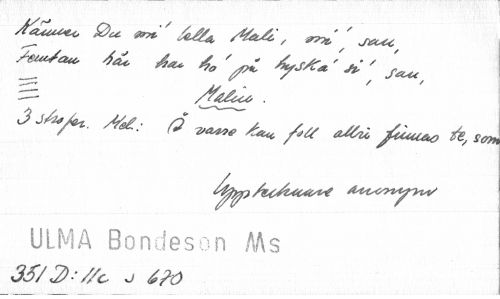 Känner Du mi' lella Mali, mi', san,
Femtan hår har hó på hyská si', san,
Malin.
3 strofer. Mel.: Å varre kan foll allri finnas te, som
Upptecknare anonym
ULMA Bondeson Ms
351 D:11c s 670